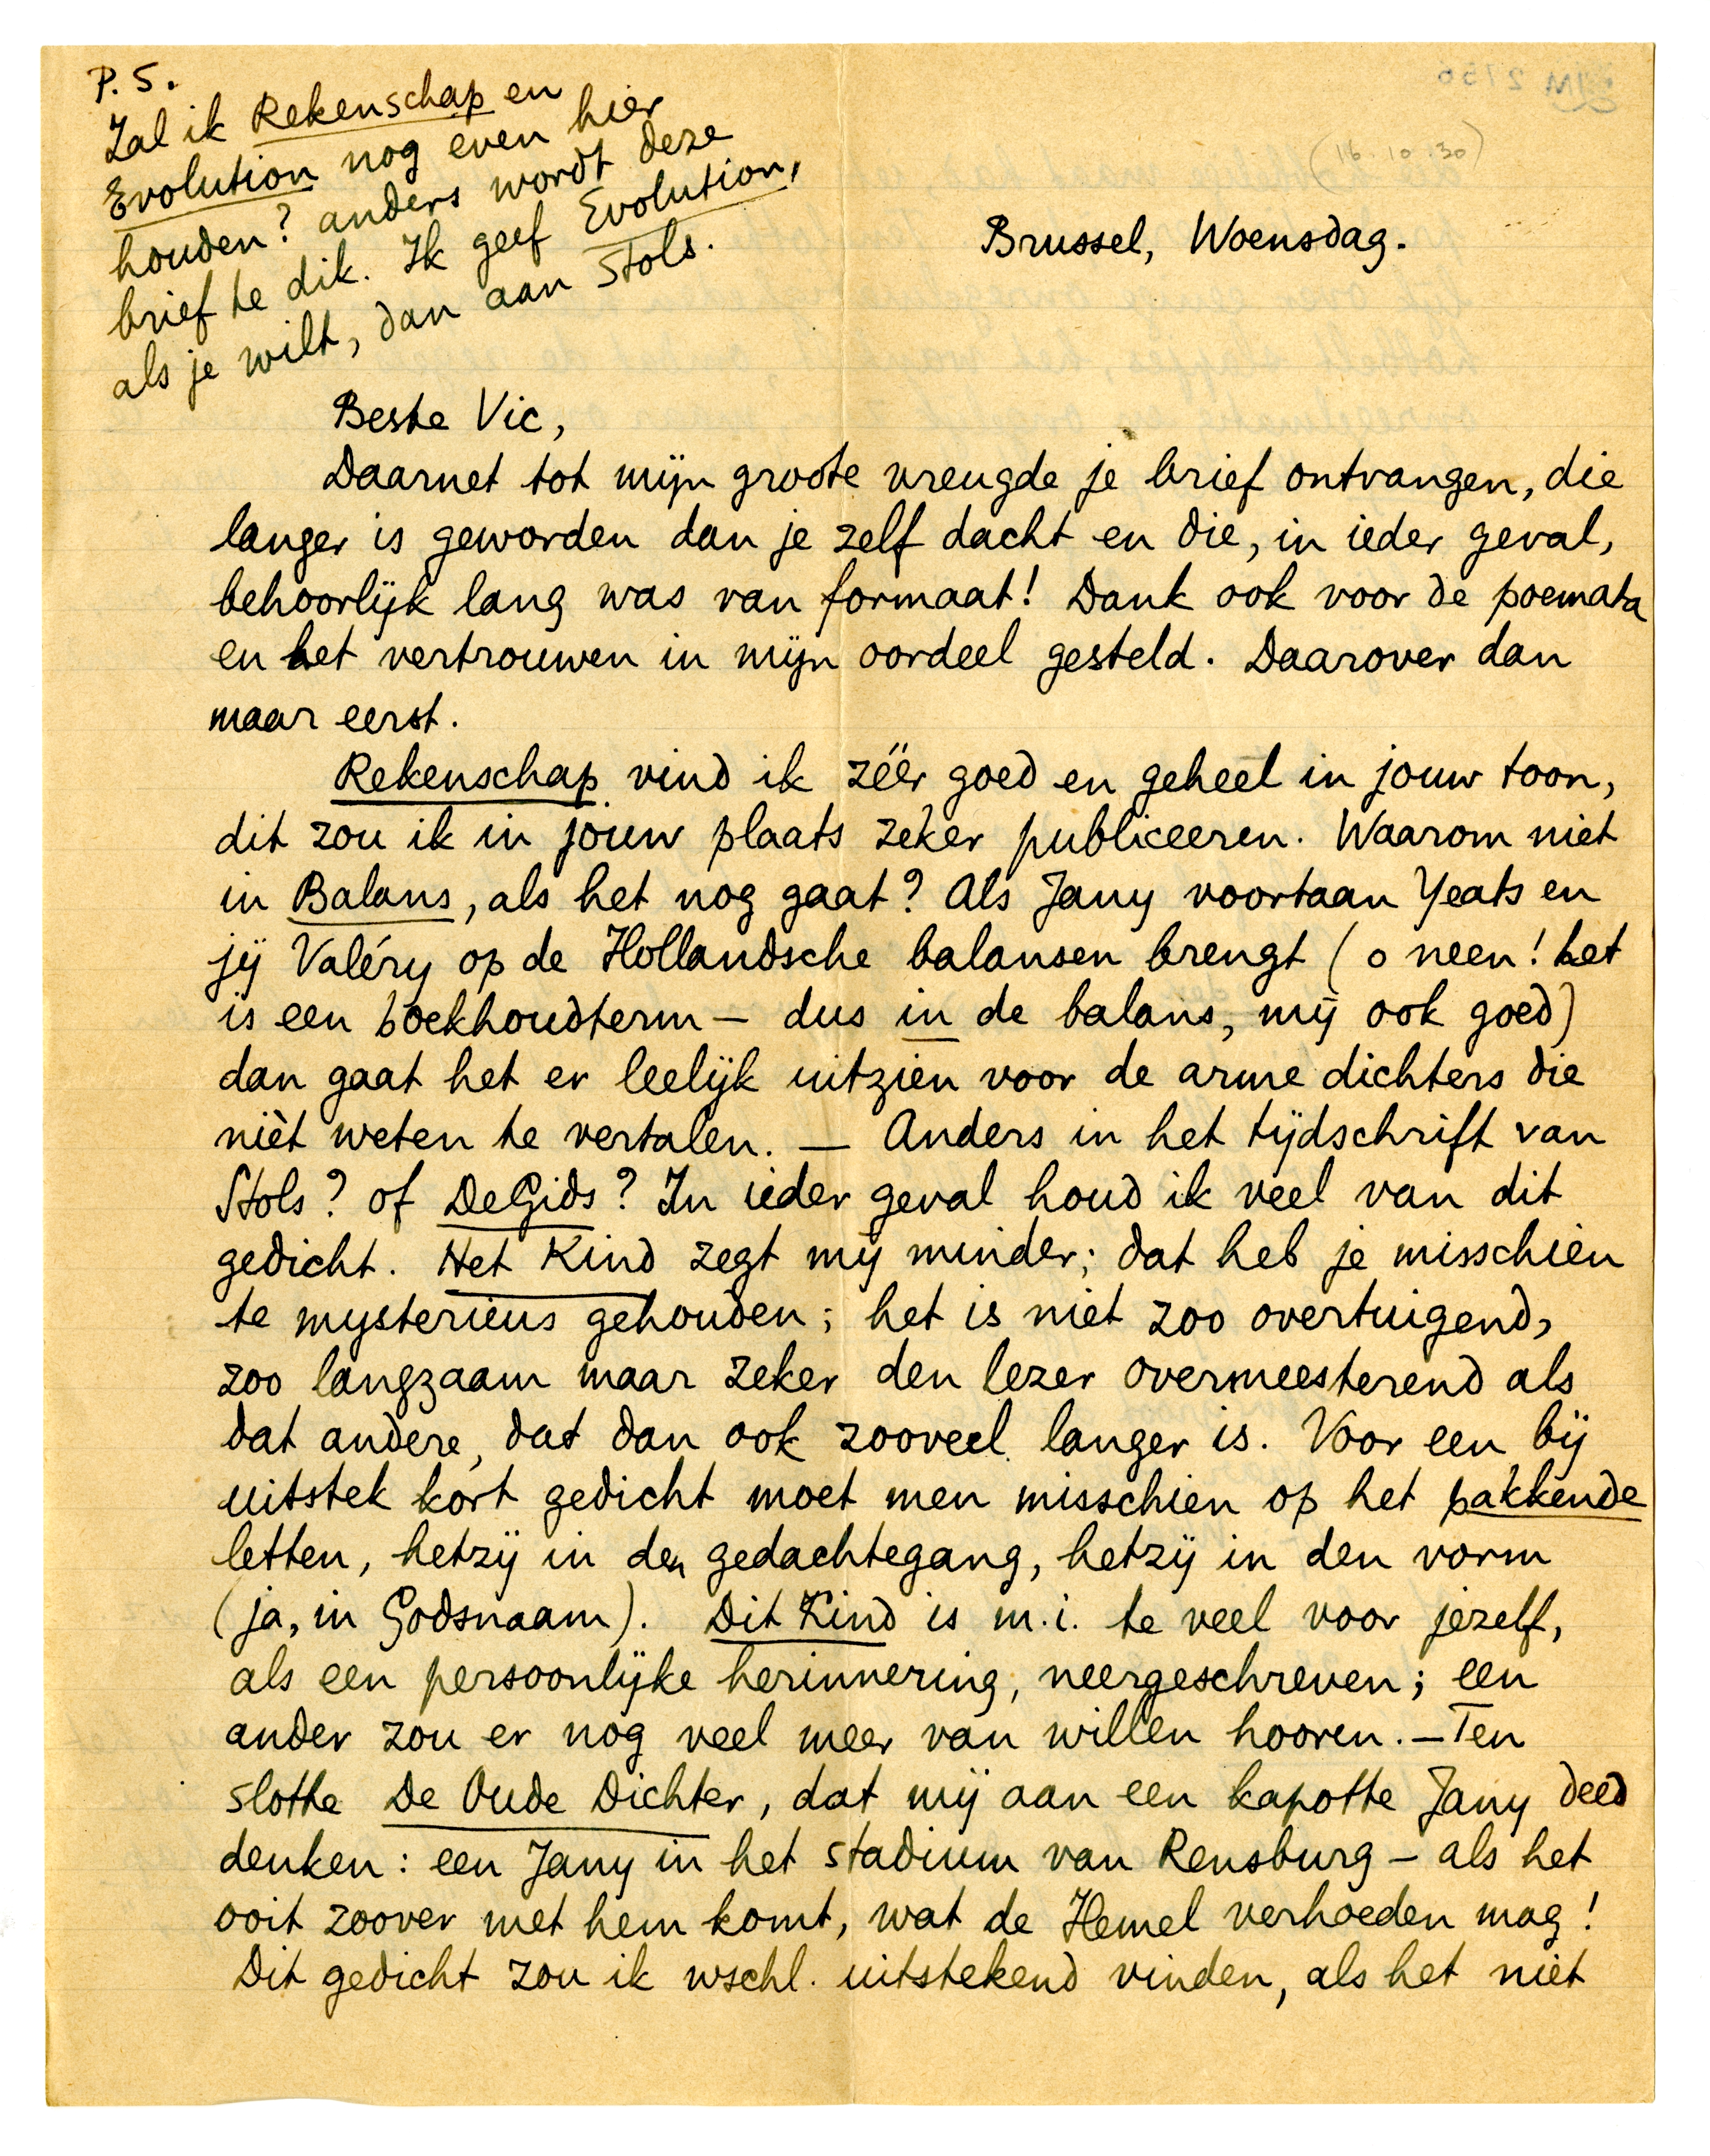 P.S.
Zal ik Rekenschap en
Evolution nog even hier
houden? anders wordt deze
brief te dik. Ik geef Evolution,
als je wilt, dan aan Stols.
(16.10.30)
Brussel, Woensdag.
Beste Vic,
Daarnet tot mijn groote vreugde je brief ontvangen, die
langer is geworden dan je zelf dacht en die, in ieder geval,
behoorlijk lang was van formaat! Dank ook voor de poemata
en het vertrouwen in mijn oordeel gesteld. Daarover dan
maar eerst.
Rekenschap vind ik zéér goed en geheel in jouw toon,
dit zou ik in jouw plaats zeker publiceeren. Waarom niet
in Balans, als het nog gaat? Als Jany voortaan Yeats en
jij Valéry op de Hollandsche balansen brengt (o neen! het
is een boekhoudterm – dus in de balans, mij ook goed)
dan gaat het er leelijk uitzien voor de arme dichters die
nièt weten te vertalen. — Anders in het tijdschrift van
Stols? of De Gids? In ieder geval houd ik veel van dit
gedicht. Het Kind zegt mij minder; dat heb je misschien
te mysterieus gehouden; het is niet zoo overtuigend,
zoo langzaam maar zeker den lezer overmeesterend als
dat andere, dat dan ook zooveel langer is. Voor een bij
uitstek kort gedicht moet men misschien op het pakkende
letten, hetzij in den gedachtegang, hetzij in den vorm
(ja, in Godsnaam). Dit Kind is m.i. te veel voor jezelf,
als een persoonlijke herinnering, neergeschreven; een
ander zou er nog veel meer van willen hooren. – Ten
slotte De Oude Dichter, dat mij aan een kapotte Jany deed
denken: een Jany in het stadium van Rensburg – als het
ooit zoover met hem komt, wat de Hemel verhoeden mag!
Dit gedicht zou ik wschl. uitstekend vinden, als het niet